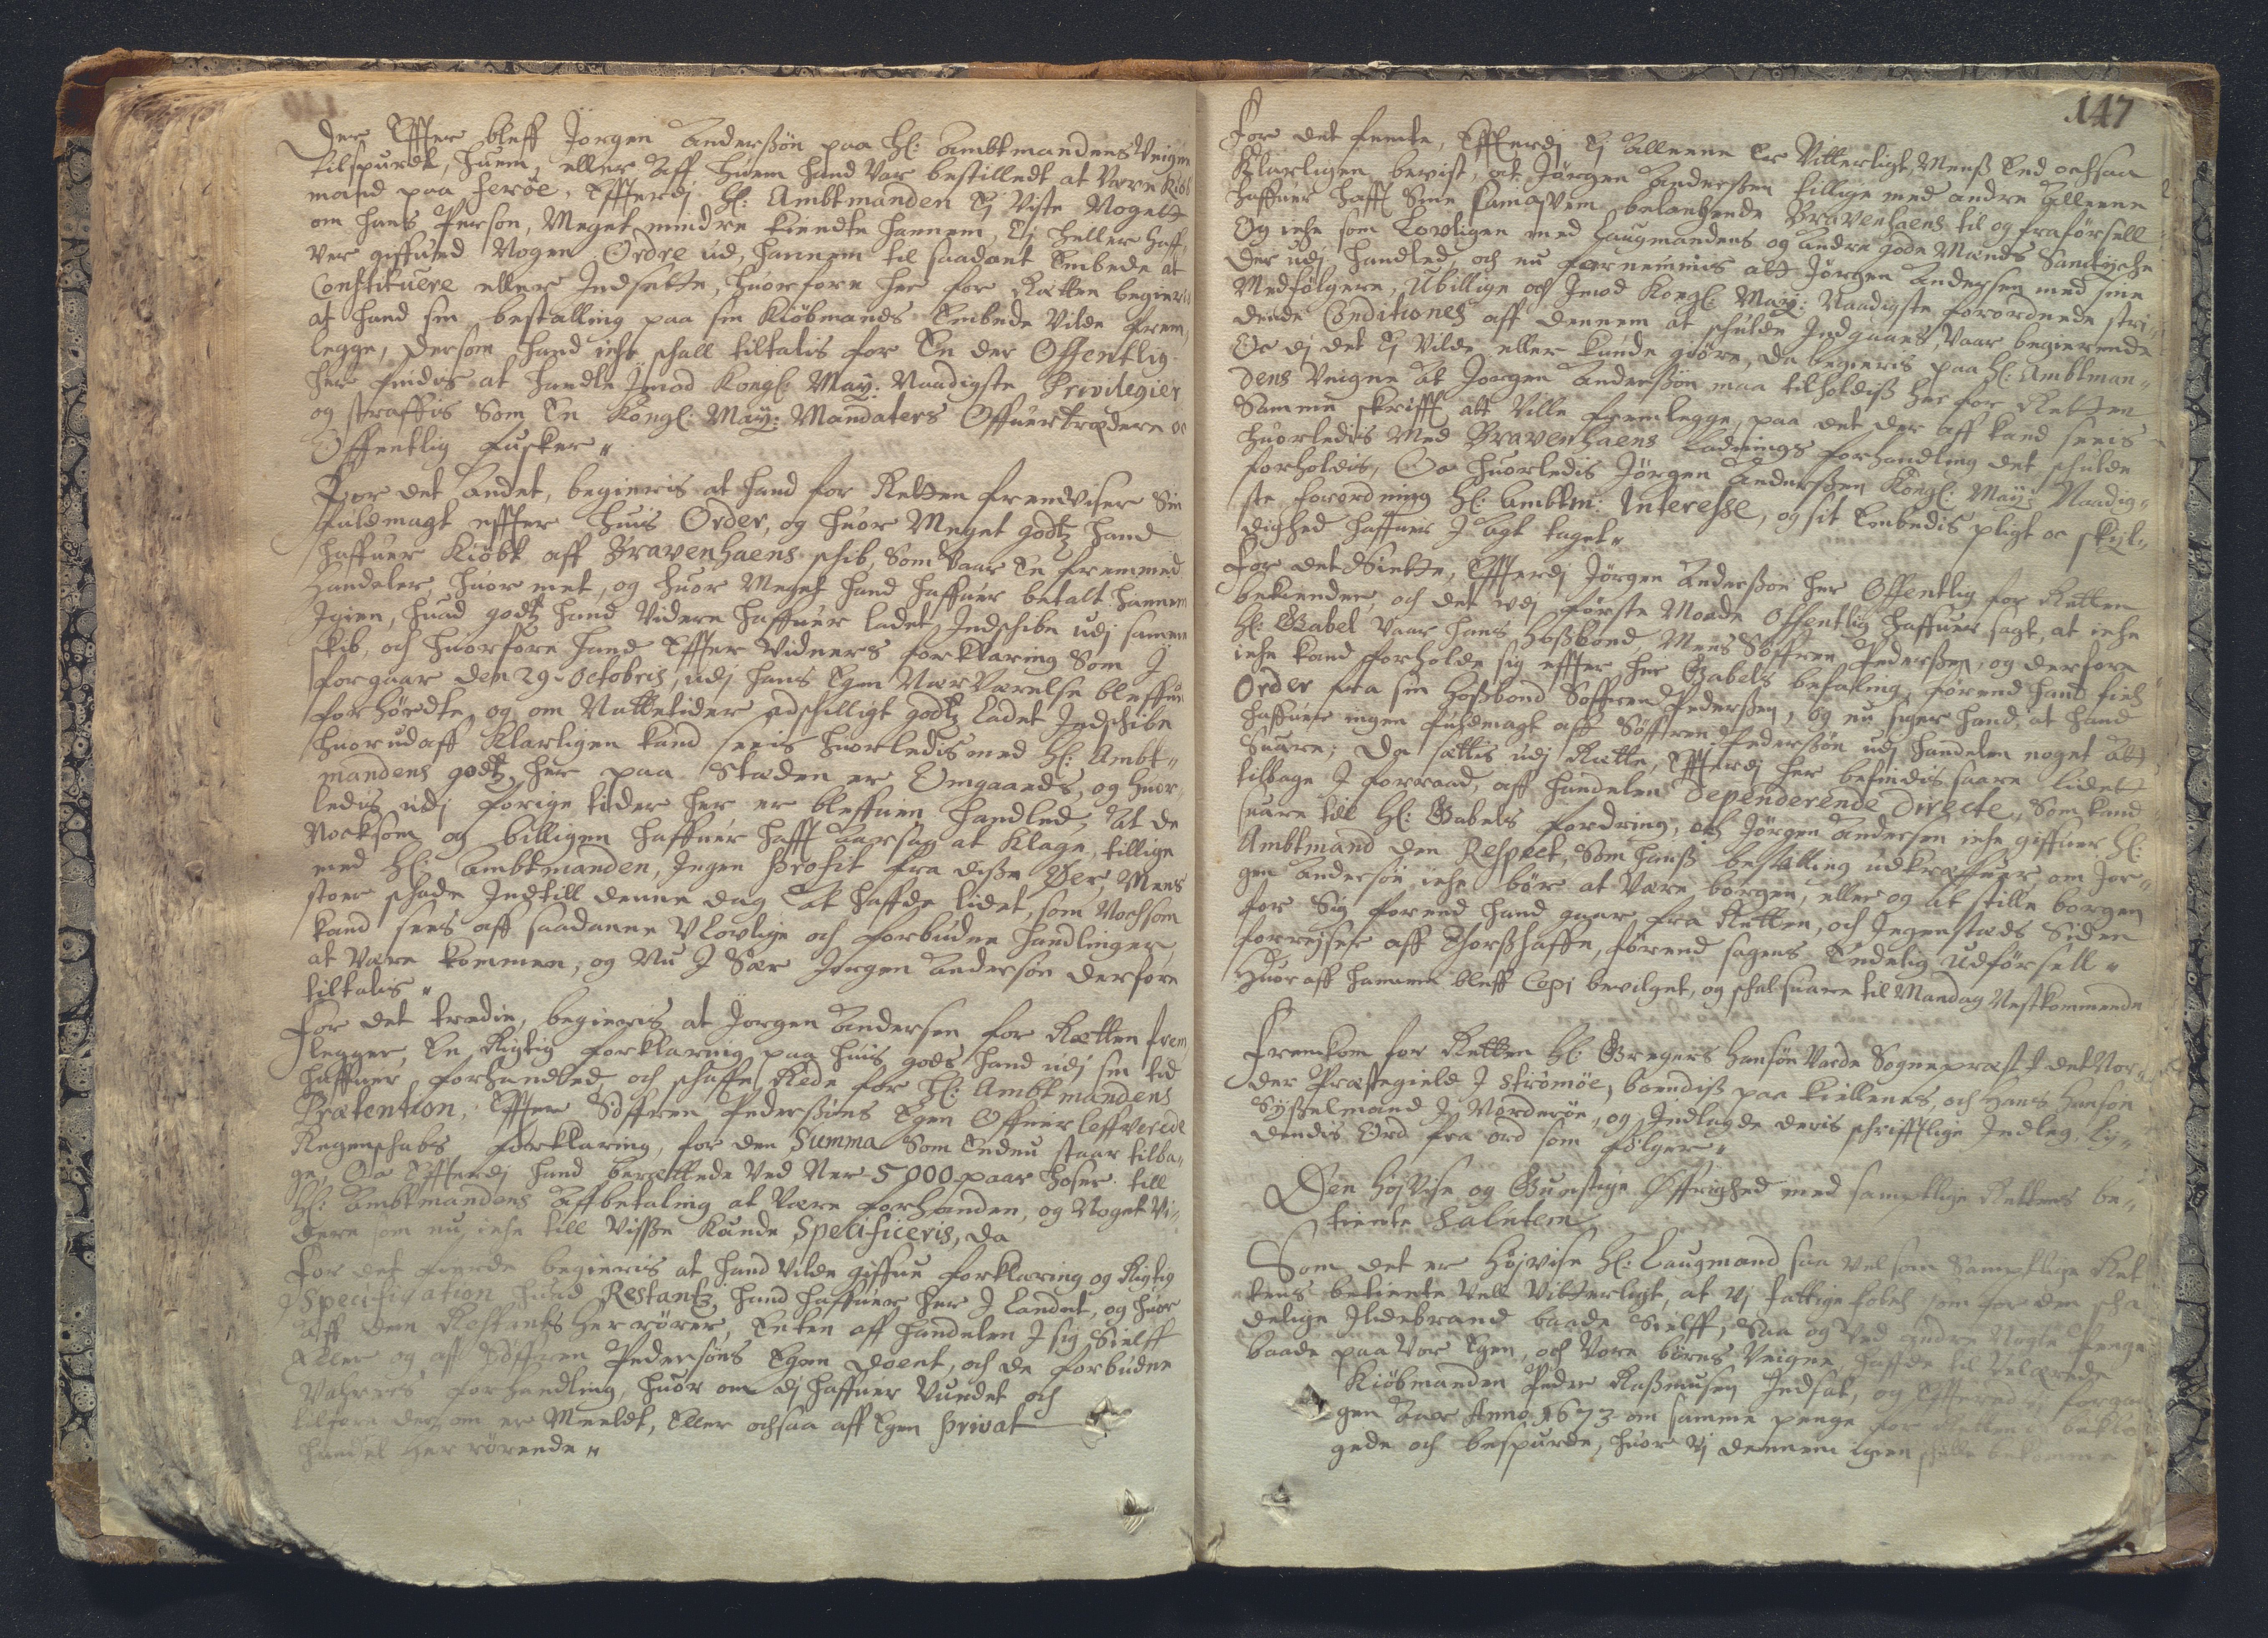 Der Effter bleff Jörgen Anderßön paa Hl: Ambtmandens Veigne
tilspurdt, huem, eller Aff huem hand var bestilledt at Være Kiöb
mand paa Feröe, Effterdj Hl: Ambtmanden Ej Viste Noget
om hans Person, Meget mindre kiendte hannem, Ej heller haff,,
ver giffued Nogen Ordre ud, hannem til saadant Embede at
Constituere eller Indsette, huorfore her for Rætten begieris
at hand sin bestalling paa sin Kiöbmands Embede Vilde frem,,
legge, dersom hand iche schall tiltalis for En der Offentlig
her findis at handle Imod Kongl: May: Naadigste Privilegier
og straffis Som En Kongl: May: Mandaters Offuertrædere oc
Offentlig fusker "
For det Andet, begieris at hand for Retten fremviser Sin
fuldmagt effter huis Order, og huor Meget godtz hand
haffuer Kiöbt aff Bravenhaens schib, Som Vaar En fremmed
handeler, huor met, og huor Meget hand haffuer betalt hannem
Igien, huad godtz hand Videre haffuer ladet Indschibe udj samme
skib, och huorfore hand Effter Vidners forklaring Som J
forgaar den 29 Octobris, udj hans Egen NærVærelse bleffue
forhördte, og om Nattetider adschilligt godtz ladet Indschibe
huorudaff Klarligen kand seeis huorledis med Hl: Ambt"
mandens godtz her paa Stæden er Omgaaeds, og huor
ledis udj forige tider her er bleffuen handled, At de
Nocksom og billigen haffuer hafft Aarsag at Klage, tillige
med Hl: Ambtmanden, Ingen Profit fra disse Öer, Mens
stoer schade Indtill denne dag At haffde lidet, som Nochsom
kand sees aff saadanne Vlovlige och forbudne handlinger
at Være kommen, og Nu J Sær Jörgen Anderson derfore
tiltalis "
For det tredie, begieris at Jörgen Andersen for Rætten frem
legger, En Rigtig forklaring paa huis gods hand udj sin tid
haffuer forhandled, och schaffe Rede for Hl: Ambtmandens
Prætention, Effter Söffren Pederßöns Egen Offuerleffverede
Regenschabs forklaring, for den Summa Som Endnu staar tilba,,
ge, Oc Effterdj hand berættede Ved Ner 5000 paar hoser till
Hl: Ambtmandens Affbetaling at Være forhanden, og Noget Vi,,
dere som nu iche till Visse kunde Specificeris, da
For det fierde begieris at hand Vilde giffue forklaring og Rigtig
Specification huad Restantz, hand haffuer her J Landet, og huor
Aff den Restants herrörer, Enten aff handelen J sig Sielff
Eller og aff Söffren Pedersöns Egen, och de forbudne
Vahrers forhandling, huor om dj haffuer Vundet och
tilforn der om er Meeldt, Eller ochsaa aff Egen privat
handel her rörende "
147
For det femte, Effterdj Ej Alleene Er Vitterligt, Menß End ochsaa
Klarligen bevist, at Jörgen Anderßen tillige med andre Alleene
haffuer hafft Sine belangende Bravenhaens til og fraförsell
Og iche som Lovligen med Laugmandens og Andre gode Mænds Samtyche
der udj handled, och nu fornemmis att Jörgen Andersen med sine
Medfölgere, Ubillige och Imod Kongl: May: Naadigste forordnede stri,,
dende Conditiones aff dennem at schulde Indgaaes, Vaar begierende
Oc dj det Ej Vilde eller kunde giöre, da begieris paa Hl: Ambtman"
dens Veigne At Jorgen Anderßön maa tilholdiß her for Retten
Samme skrifft att Ville fremlegge, paa det der aff kand seeis
huorledis Med Bravenhaens Ladnings forhandling det schulde
forholdis, Oc huorledis Jörgen Anderßen Kongl: May: Naadig"
ste forordning Hl: Ambtm: Interesse, og sit Embedis pligt oc skyl"
dighed haffuer J agt taget "
For det Siette, Effterdj Jörgen Anderßön her Offentlig for Retten
bekiender, och det udj förste Moede Offentlig haffuer sagt, at iche
Hl: Gabel Vaar hans hoßbond Mens Söffren Pederßen, og derfore
iche kand forholde sig effter her Gabels befaling, förend hand fich
Order fra sin hoßbond Söffren Pederßen, og nu siger hand, at hand
haffuer ingen fuldmagt aff Söffren Pederßön udj handelen noget Att
Suare; Da sættis udj Rætte, Effterdj her befindis saare lidet
tilbage J forraad, aff handelen Dependerende Directe, Som kand
suare till Hl: Gabels fordring, och Jörgen Andersen iche giffuer Hl:
Ambtmand den Respect, Som hanß bestalling udkræffuer, om Jör"
gen Andersön iche bör at Være borgen, eller og At stille borgen
for Sig forend hand gaar fra Retten, och Ingenstæds Siden
forrejser aff Thorßhaffn, förend sagens Endelig Udförsell "
Huor aff hannem bleff Copi bevilget, og schal suare til Mandag Nestkommende
Fremkom for Retten Hl: Gregers Hansön Varde Sogneprest J det Nor"
der Præstegield J Strömöe, boendiß paa Kiellenes, och Hans Hansön
Sysselmand J Norderöe, og Indlagde deris schrifftlige Indleg, ly"
dendis Ord fra ord som fölger "
Den HöjVise og Gunstige Öffrighed med samptlige Rettens be"
tiente Salutem
Som det er Höjvise Hl: Laugmand saa vel som Samptlige Ret
tens betiente Vell Vitterligt, at Vj fattige folch som for den scha
delige Ildebrand baade Sielff, Saa og Ved andre Nogle Penge
baade paa Vor Egen, och Vore börns Veigne, haffde til Velærede
Kiöbmanden Peder Raßmusen Indsat, og Effter forgan
gen Aar Anno 1673 om samme penge for Retten bekla
gede och bespurde, huor Vj dennem igien schulle bekomme